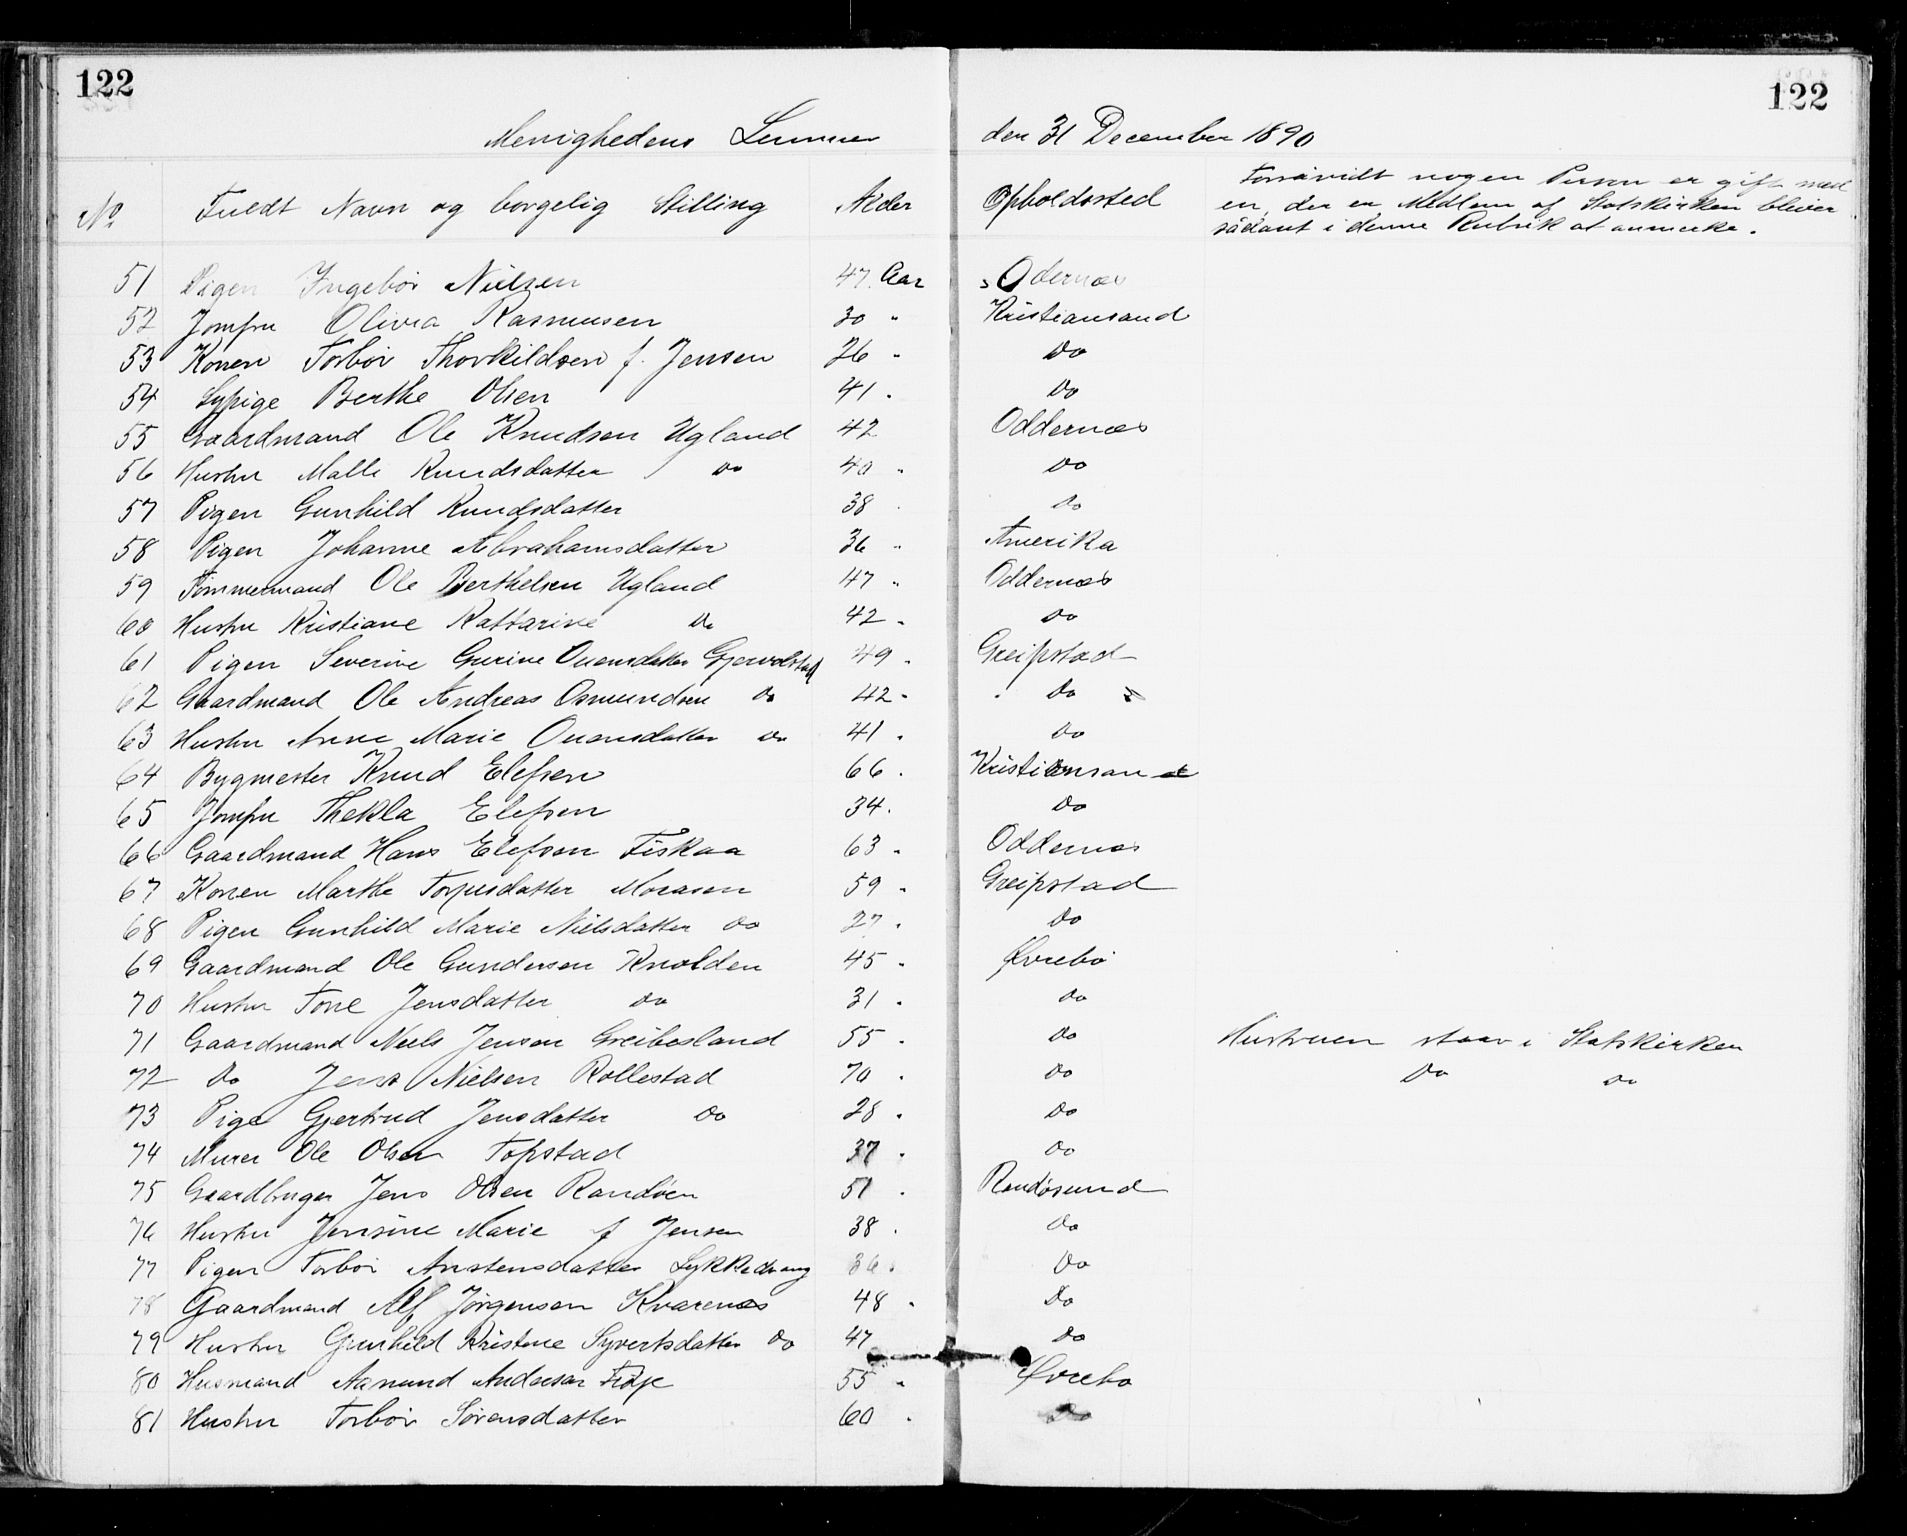 122
122
Menighedens Lemmer den 31 December 1890
No. Fuldt Navn og borgelig Stilling Alder Opholdssted
Forsavidt nogen Person er gift med
en, der er Medlem af Statskirken bliver
sådant i denne Rubrik at anmerke.
51 Pigen Ingebor Nielsen 47 Aar Odernæs
52 Jomfru Olivia Rasmusen 30 " Kristiansand
53 Konen Torbör Thorkildsen f. Jensen 26 " Do
54 Sypige Berthe Olsen 41 . Do
55 Gaardmand Ole Knudsen Ugland 42 Oddernæs
56 Hustru Malli Knudsdatter Do 40 " Do
57 Pigen Gunhild Knudsdatter 38 . Do
58 Pigen Johanne Abrahamsdatter 36 " Amerika
59 Tømmermand Ole Berthelsen Ugland 47 " Oddernæs
60 Hustru Kristiane Kattarine Do 42 " Do
61 Pigen Severine Gurine Ouensdatter Gjervolstad 49 " Greipstad
62 Gaardmand Ole Andreas Osmundsen Do 42 " Do
63 Hustru Anne Marie Ouensdatter Do 41 . Do
64 Bygmester Knud Elefsen 66 . Kristiansand
65 Jomfru Thekla Elefsen 34 . Do
66 Gaardmand Hans Elefsen Fiskaa 63 . Oddernæs
67 Konen Marthe Torjusdatter Morasen 59 " Greipstad
68 Pigen Gunhild Marie Nielsdatter Do 27 . Do
69 Gaardmand Ole Gundersen Knolden 45 " Øvrebö
70 Hustru Tone Jensdatter Do 31 . Do
71 Gaardmand Niels Jensen Greibesland 55 . Do Hustruen staar i Statskirken
72 Do Jens Nielsen Rollestad 70 . Do Do Do
73 Pige Gjertrud Jensdatter Do 28 . Do
74 Murer Ole Olsen Topstad 37 . Do
75 Gaardbruger Jens Olsen Randöen 51 . Randösund
76 Hustru Jensine Marie f Jensen 38 . Do
77 Pigen Torbör Anstensdatter Lykkedrang 36 . Do
78 Gaardmand Alf Jørgensen Kvarenæs 48 " Do
79 Hustru Gunhild Kristene Syvertsdatter Do 47 Do
80 Husmand Aanund Andersen 55 " Øvrebö
81 Hustru Torbör Sørensdatter 60 . Do